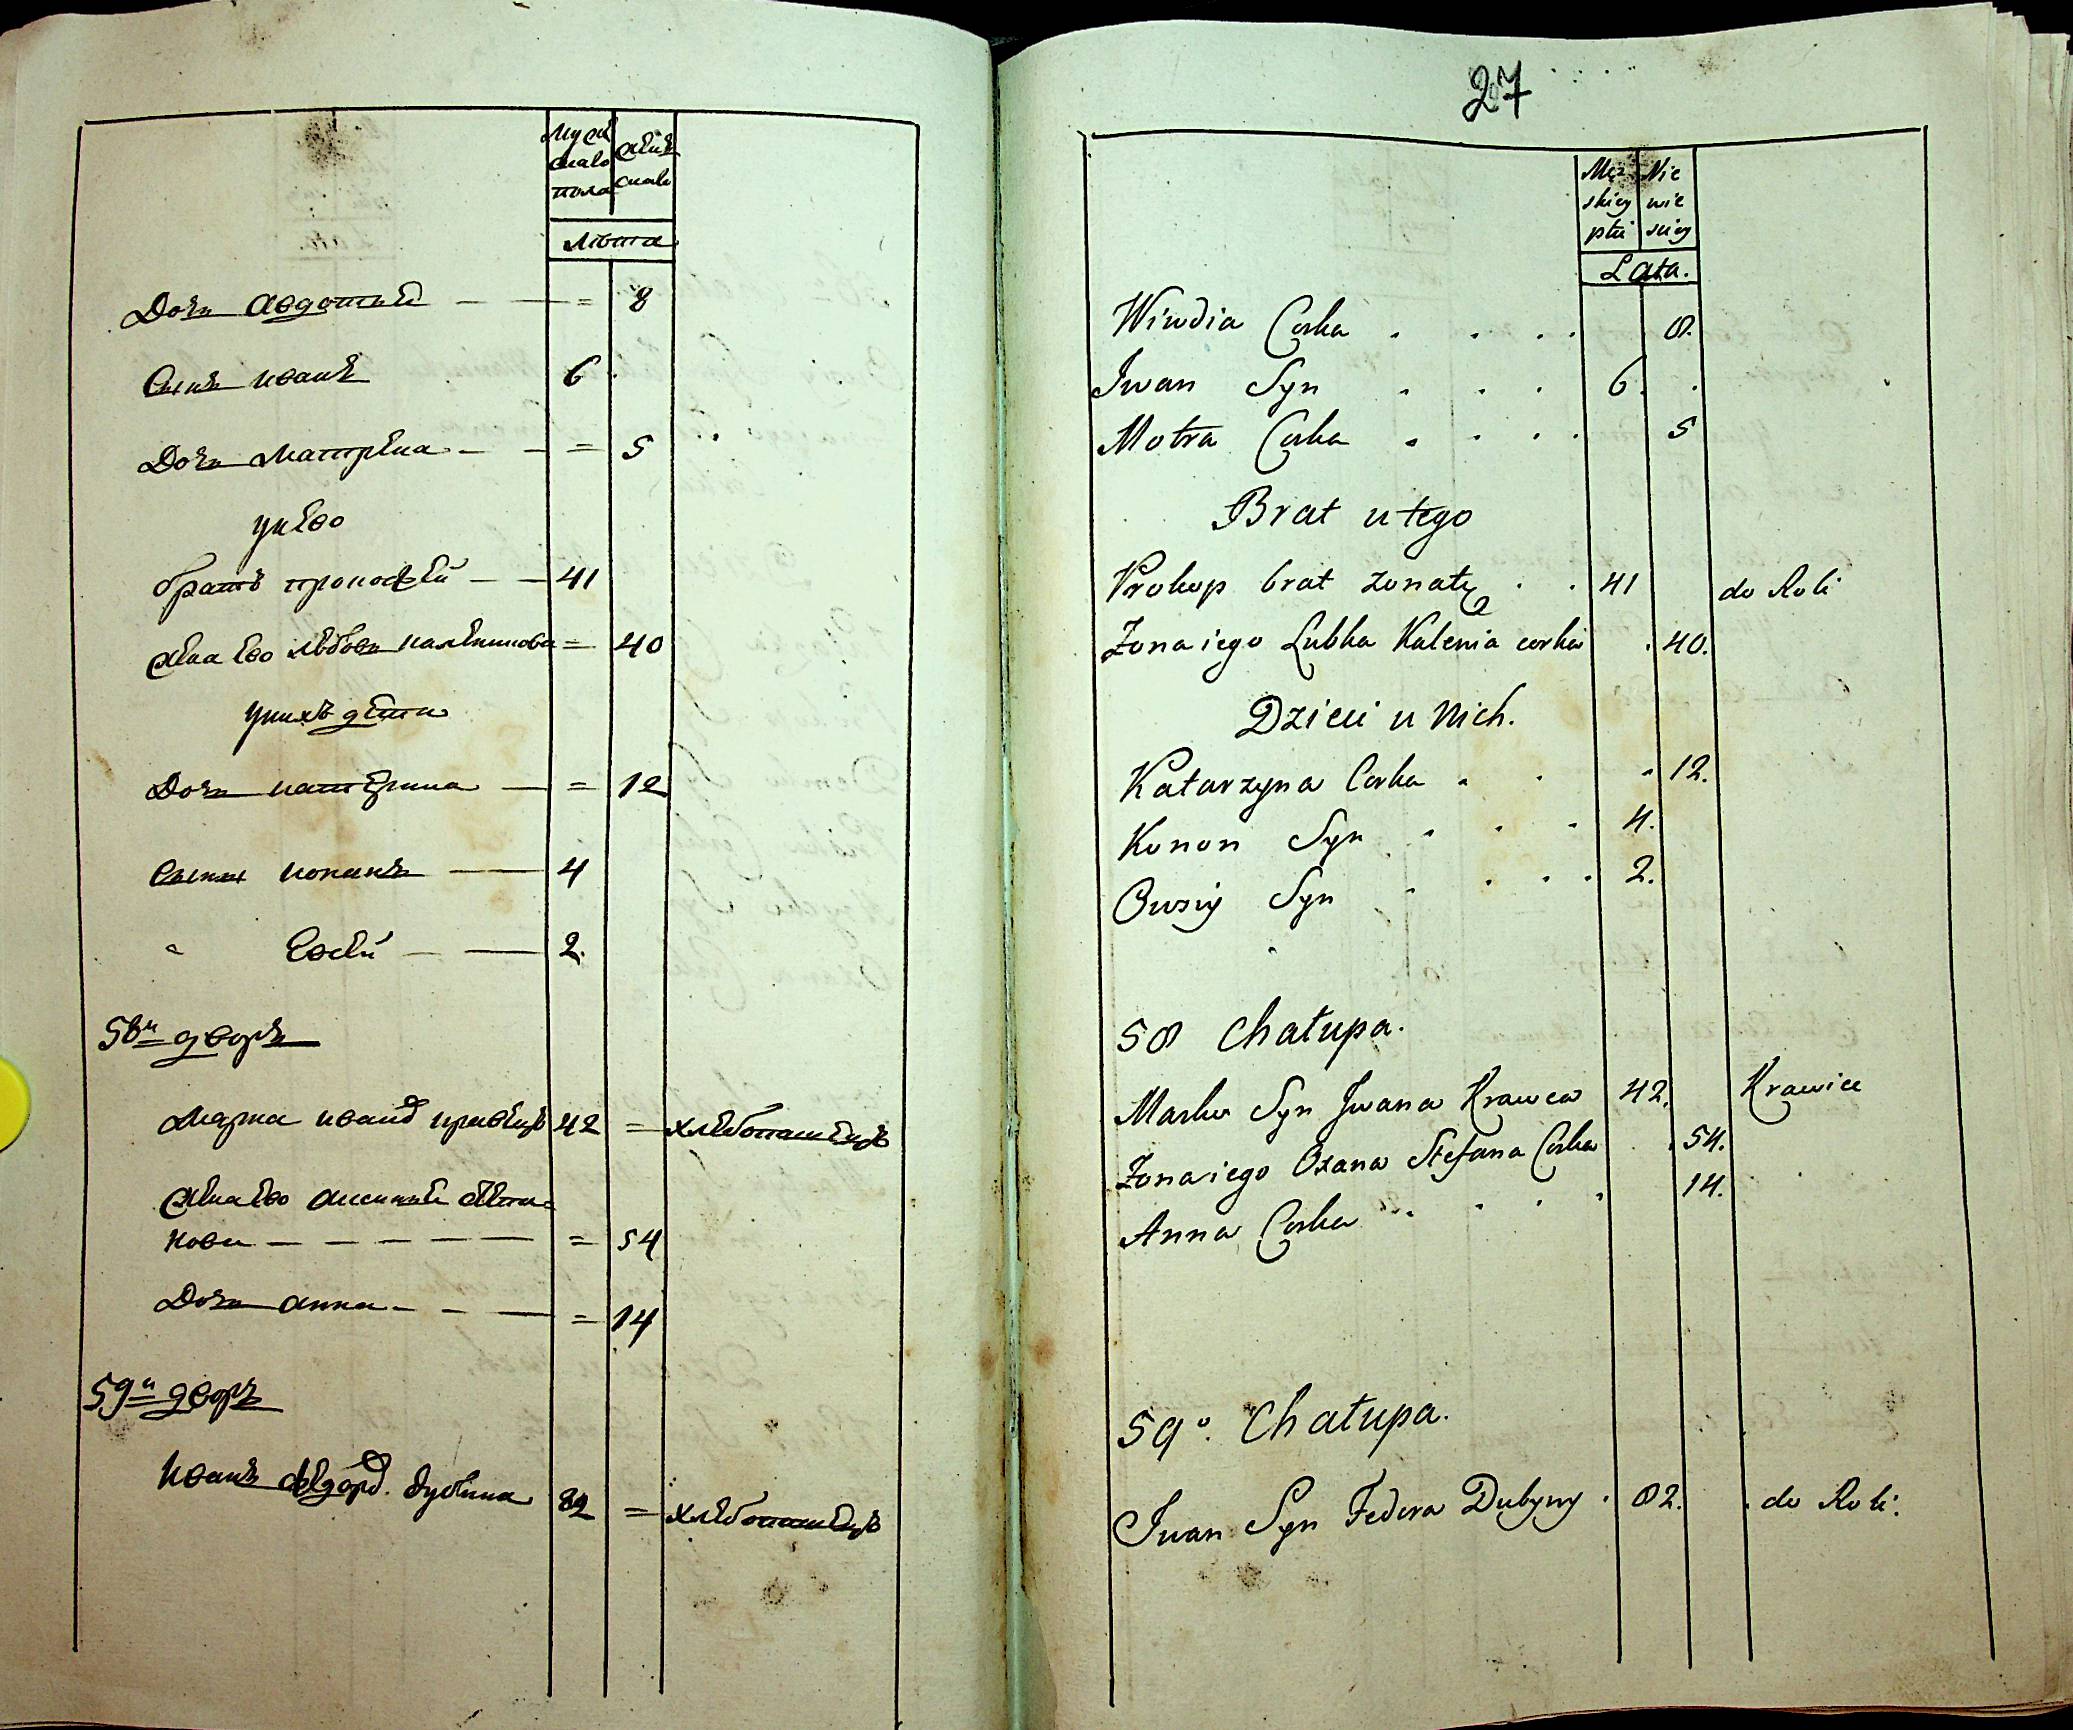 Муж
скаго
пола
Жен
скаго
Лѣта
Дочь Авдотья — — = 8
Сынъ Иванъ 6
Дочь Матрена — — = 5
У него
братъ Прокофей — — 41
Жена ево Любовь Калѣникова = 40
У нихъ дети
Дочь Катерина — = 12
Сынъ Кононъ — 4
" Евсей — — 2.
58й дворъ
Марко Иванов Кравецъ 42 = хлебопашецъ
Жена ево Аксинья
нова — — — — — = 54
Дочь Анна — — — = 14
59й дворъ
Иванъ Федоров. Дубина 82 = хлебопашецъ
27
Męz
skiey
płci
Nie
wie
sciey
Lata.
Wiwdia Corka . . . . 8.
Iwan Syn . . . 6. .
Motra Corka . . . . 5
Brat u tego
Prokop brat zonaty . . 41 do Roli
Zona iego Lubka Kalenia corka . 40.
Dzieci u Nich.
Katarzyna Corka . . . 12.
Konon Syn . . . 4.
Owsiy Syn . . . . 2.
58 Chałupa.
Marko Syn Jwana Krawca 42. Krawiec
Zona iego Oxana Stefana Corka . 54.
Anna Corka . . . . 14.
59º. Chałupa.
Jwan Syn Fedora Dubyny . 82. . do Roli.